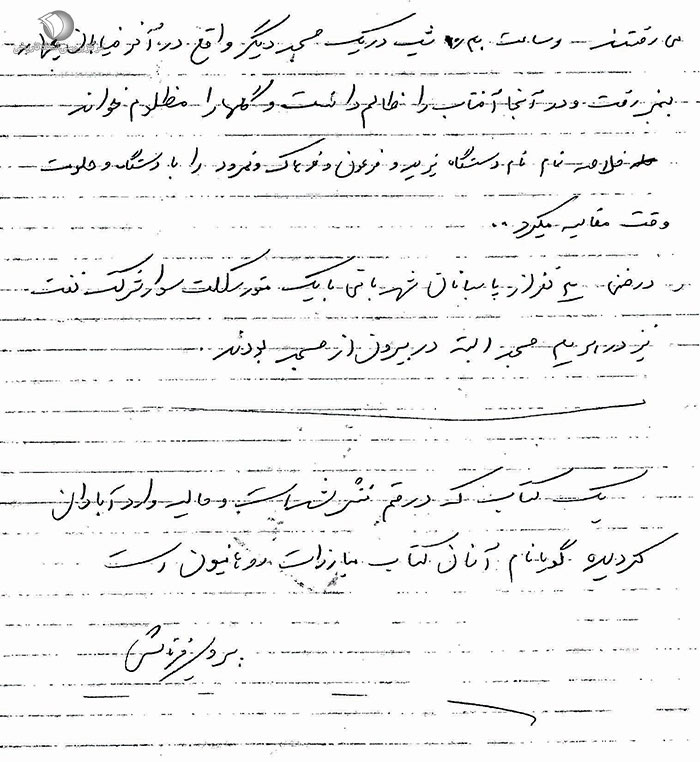 می رفتند - و ساعت ۹ شب در یک مسجد دیگر واقع در آخر خیابان
بمنبر رفت و در آنجا آفتاب را ظالم دانست و گلها را مظلوم خواند
خلاصه تمام دستگاه یزید و فرعون و ضحاک و نمرود را با دستگاه و حکومت
وقت مقایسه میکرد ..
در ضمن نفر از پاسبانان شهربانی با یک موتورسکلت سوار شرکت نفت
نیز در حریم مسجد البته در بیرون از مسجد بودند .
یک کتاب که در قم نشر شده است و حالیه وارد آبادان
گردیده گویا نام آن کتاب مبارزات روحانیون است